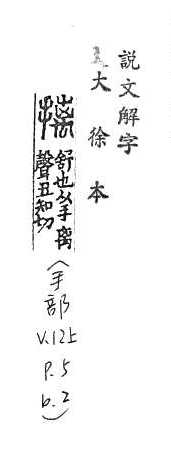 説文解字
大徐本
摛
舒也从手离
聲丑知切
(手部
V.12上
P.5
b.2)